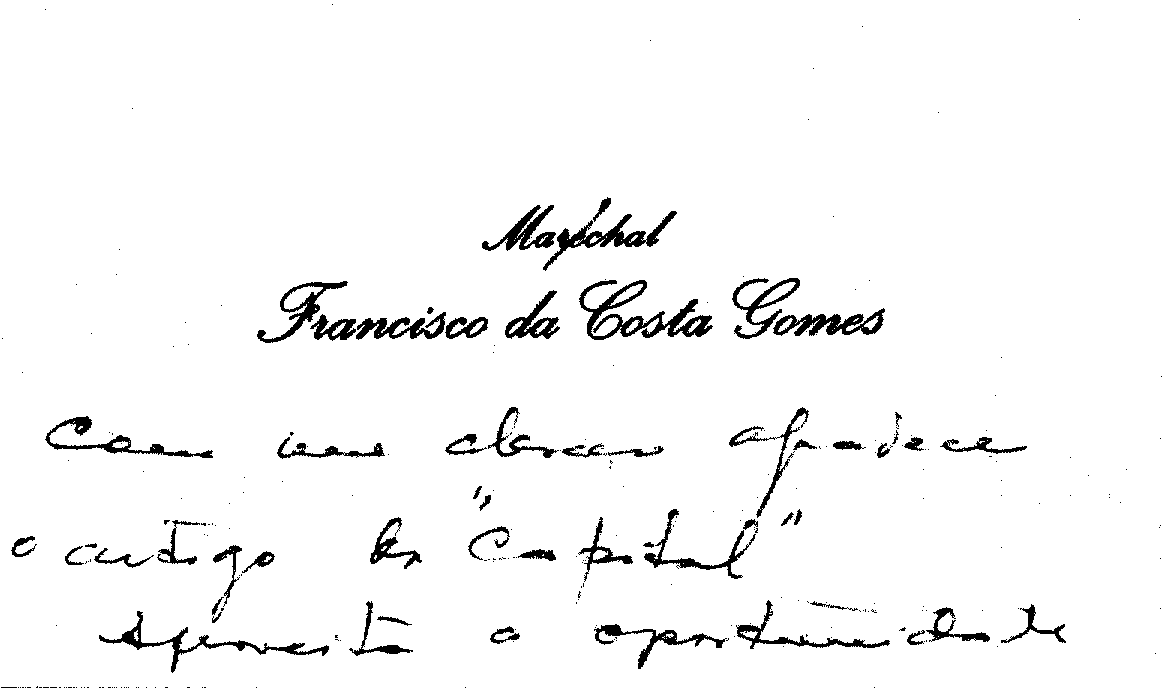 Maréchal
Francisco da Costa Gomes
Com um abraço agradece
o artigo da "Capital"
Aproveita a oportunidade